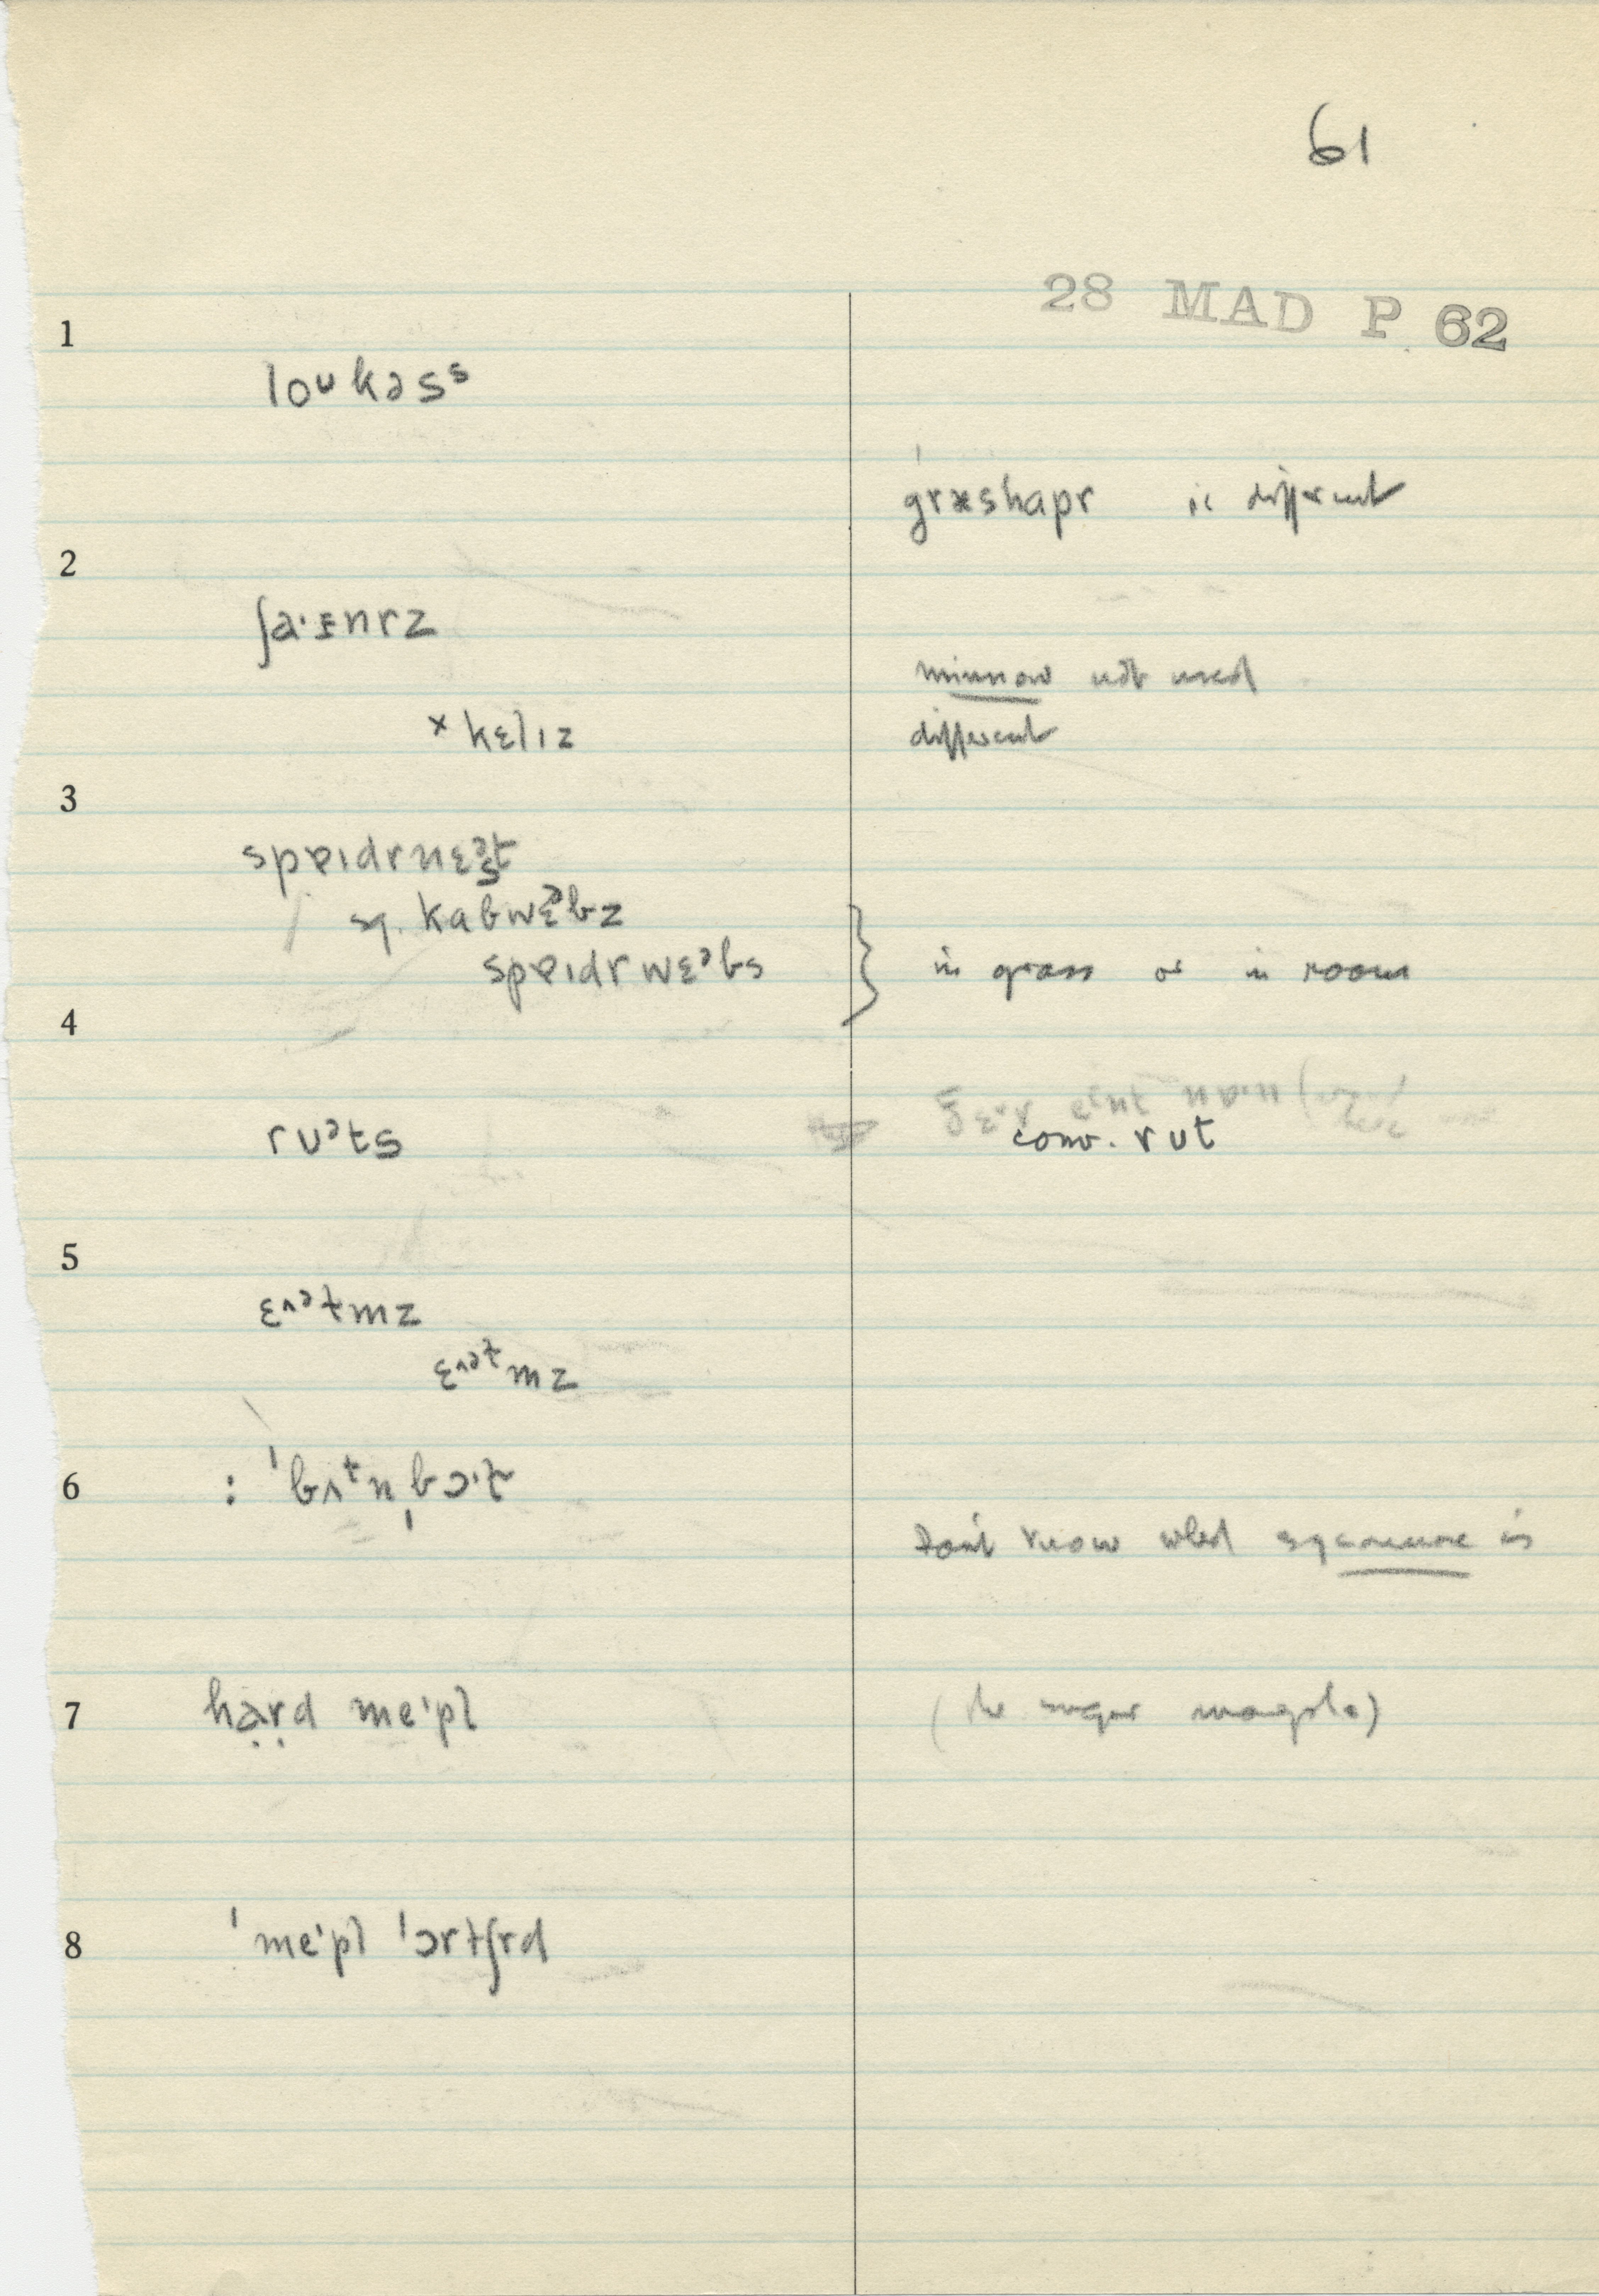 61
28 MAD P 62
1
loᵘkəsˢ
græshapr is different
2
ʃa·ɪnrz
minnow not used
× kɛlız different
3
spɐıdrnɛᵊst
sq. kabwɛᵊbz
spɐıdrwɛᵊbs } in grass or in room
4
ruᵊts conv. rut
5
ɛᴧᵊtmz
ɛᴧᵊᵗmz
6 : ˈbᴧᵗnˌbɔ·t
Don't know what sycamore is
7 hạṛd me·pl (the sugar maple)
8 ˈme·pl ˈɔrtʃrd